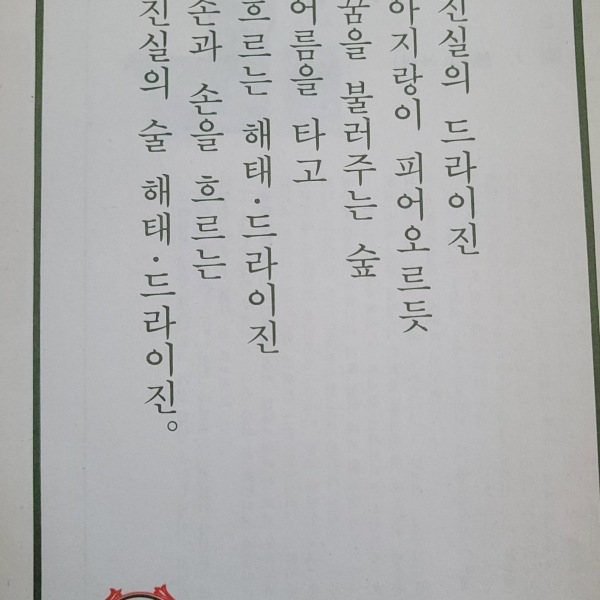 진실의 드라이진
아지랑이 피어오르듯
꿈을 불러주는 숲
어름을 타고
흐르는 해태·드라이진
손과 손을 흐르는
진실의 술 해태·드라이진。